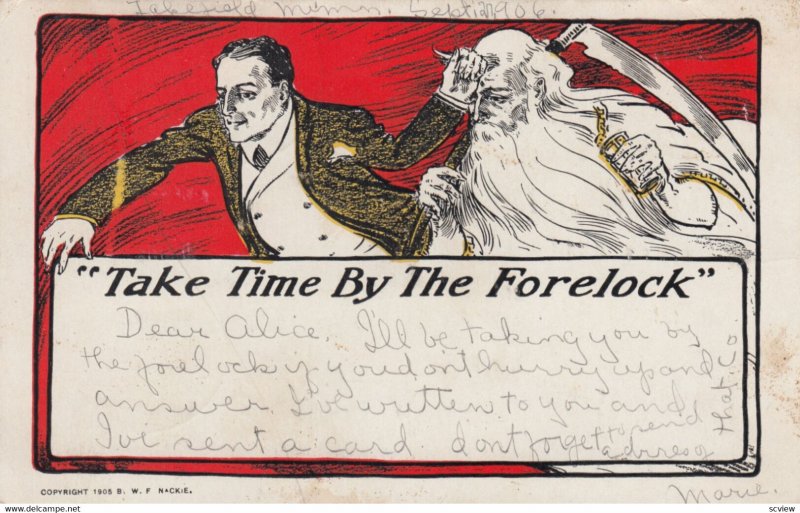 Lakefield Minn. Sept. 1906
"Take Time By The Forelock"
Dear Alice, I'll be taking you by
the forelock if you dont hurry up and
answer. I've written to you and
I've sent a card. dont forget to send
adrres of
that Co
Marie.
COPYRIGHT 1905 B. W. F NACKIE.
scview